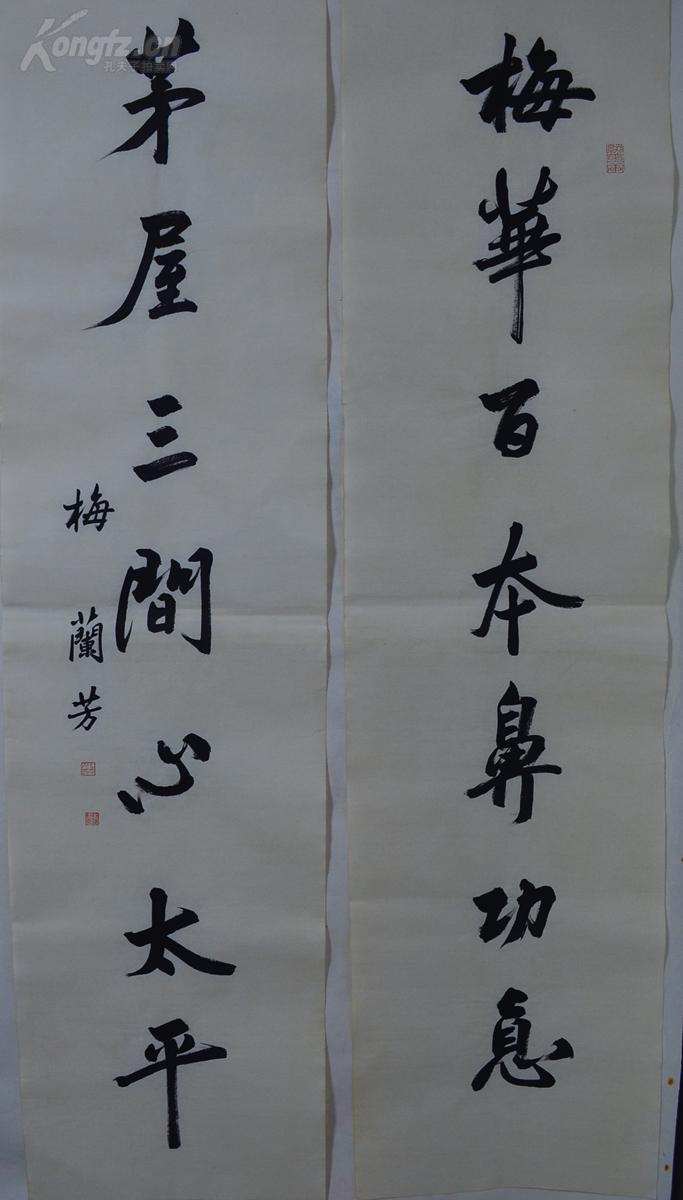 梅華百本鼻功息
茅屋三間心太平
梅蘭芳
Kongfz.cn